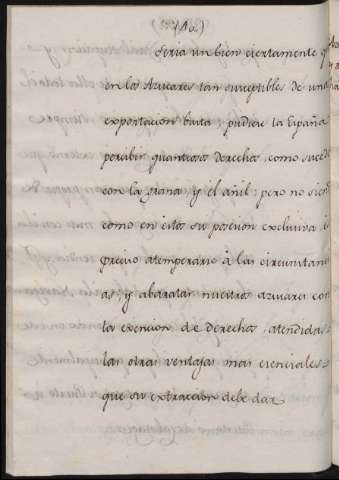 (40)
Seria un bien ciertamente q
en los Azucares tan suceptibles de una
exportacion basta, pudiese la España
percibir quantiosos derechos, como sucede
con la grana y el añil; pero no siendo
como en estos su posesion exclusiva, es
preciso atemperarse á las circunstanci
as, y abaratar nuestros azucares con
la exencion de derechos, atendidas
las otras ventajas mas esenciales
que su extraccion debe dar.